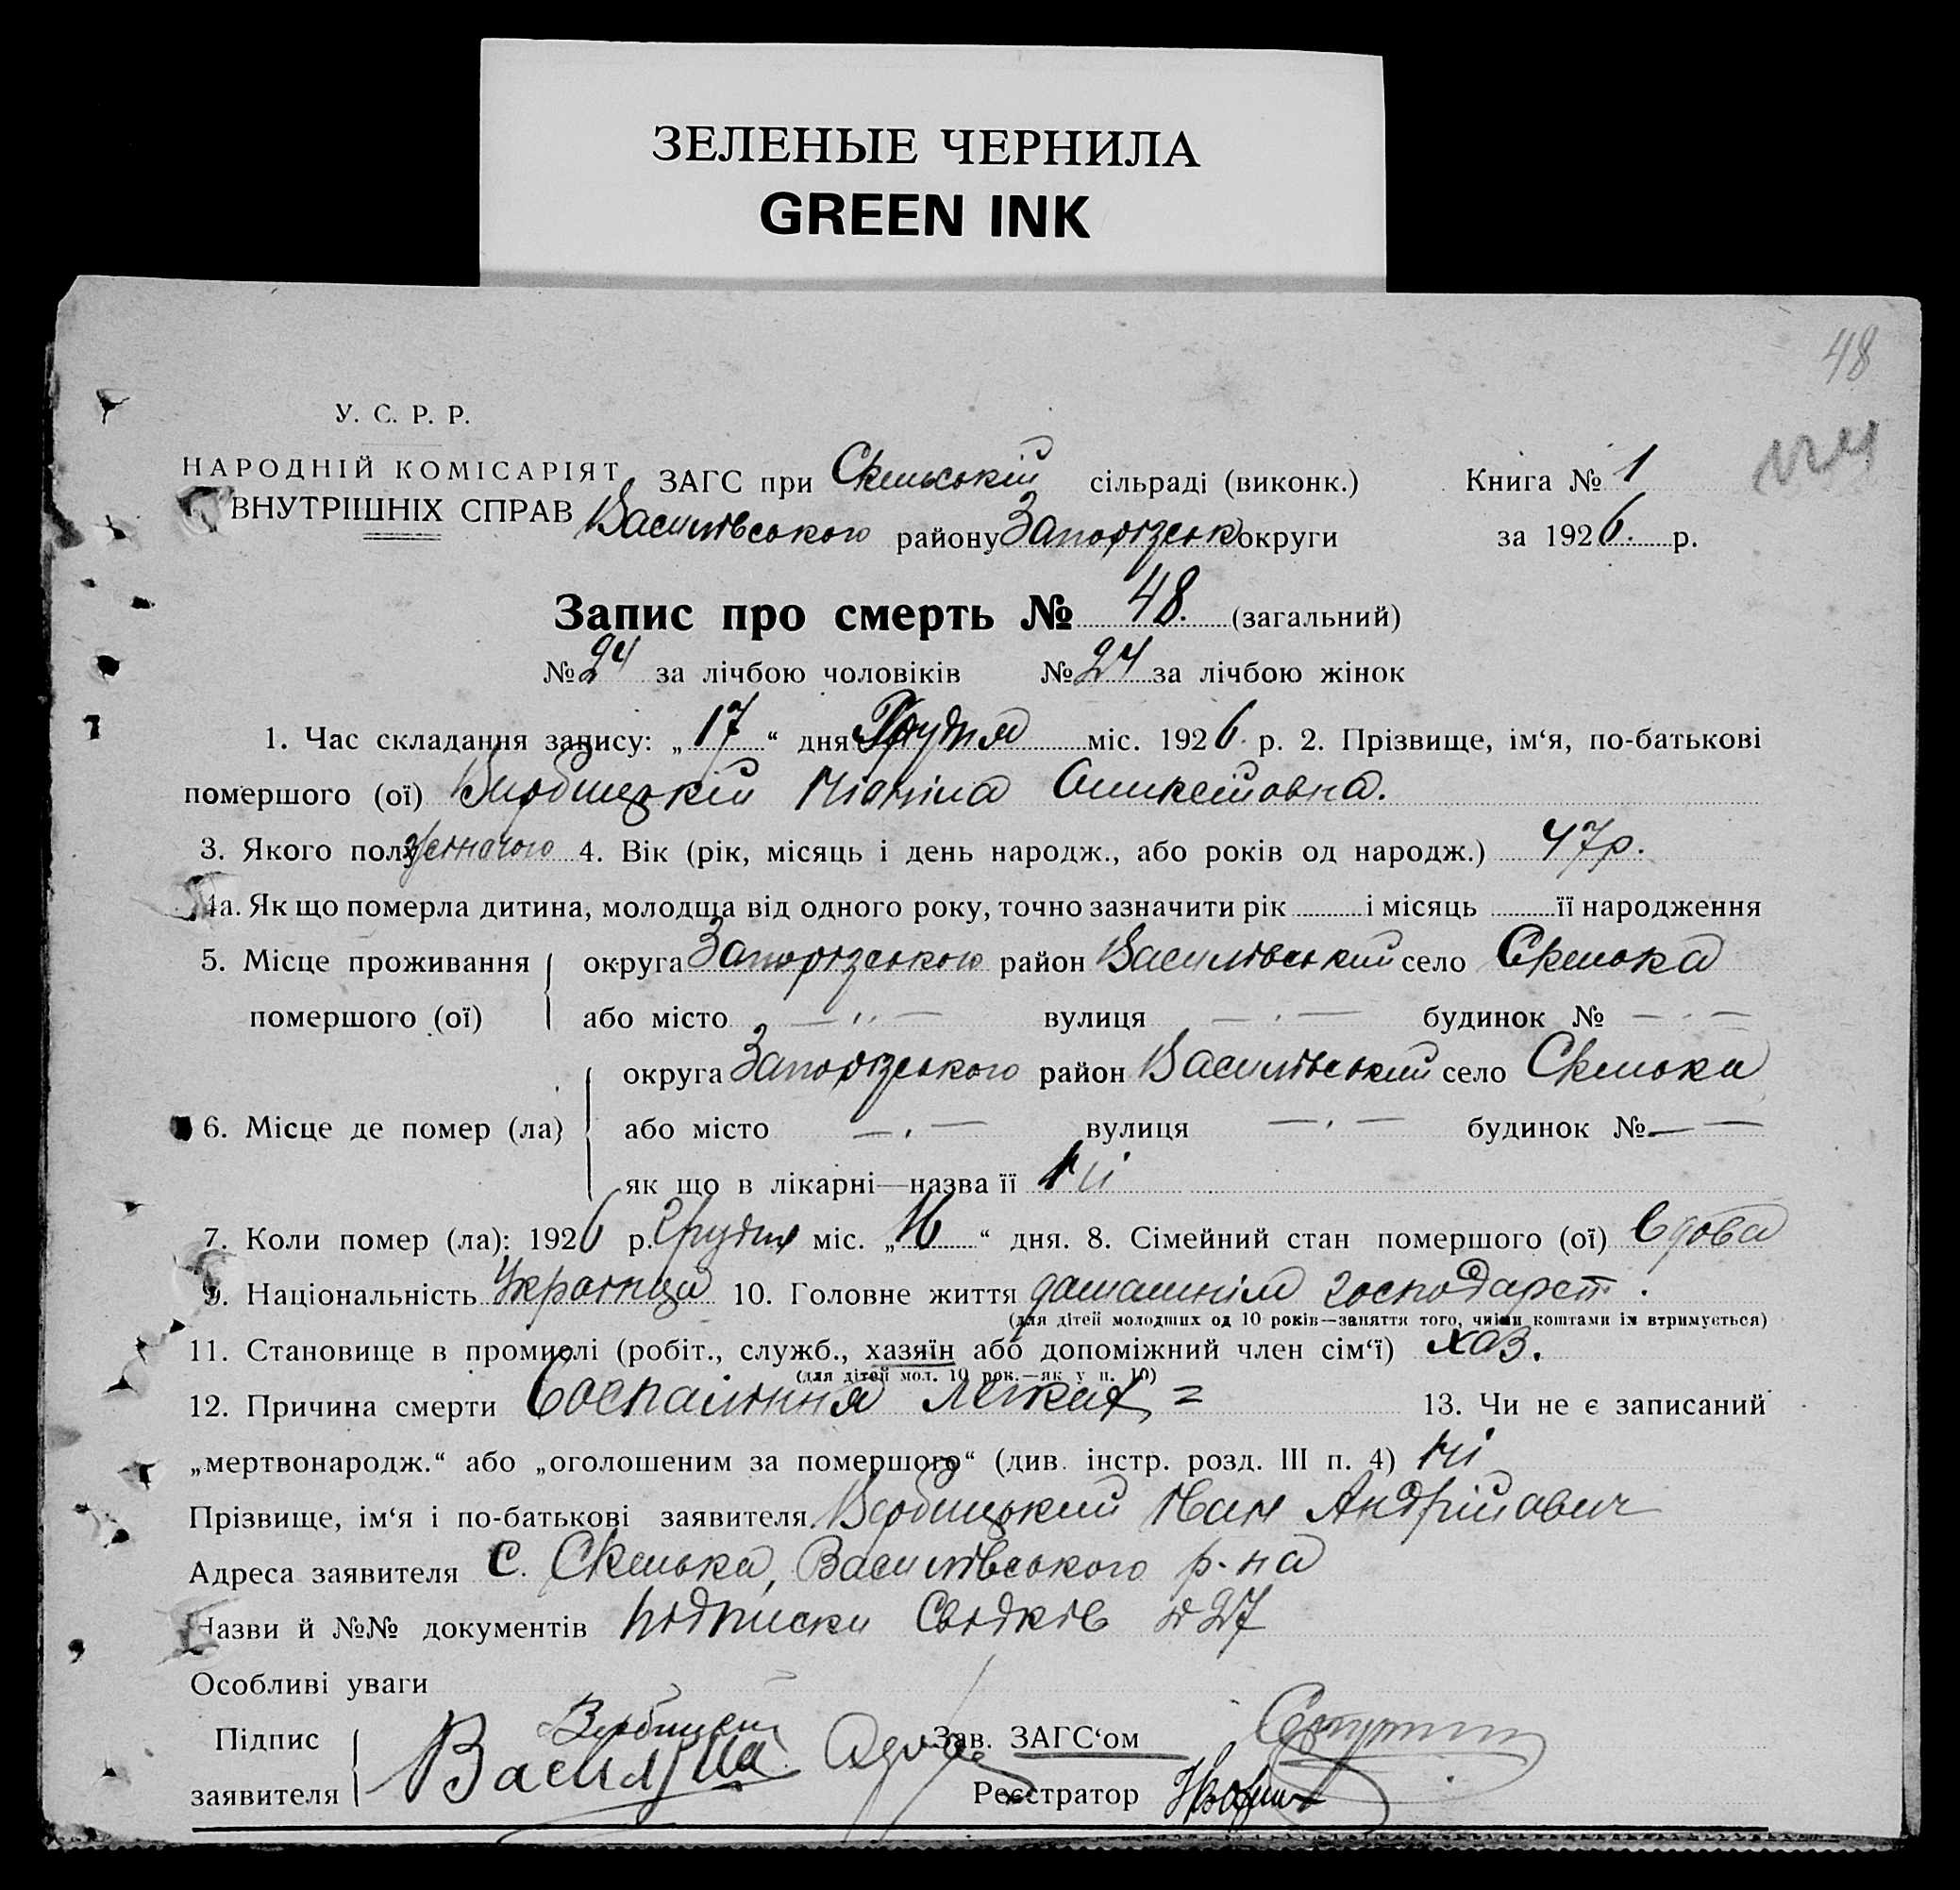 ЗЕЛЕНЫЕ ЧЕРНИЛА
GREEN INK
48
У. С. Р. Р.
НАРОДНІЙ КОМІСАРІЯТ
ВНУТРІШНІХ СПРАВ
ЗАГС при Скельській сільраді (виконк.) Книга № 1
Василівського району Запорізськ округи за 1926. р.
Запис про смерть № 48. (загальний)
№ 24 за лічбою чоловіків № 24 за лічбою жінок
1. Час складання запису: „17“ дня Грудня міс. 1926 р. 2. Прізвище, ім‘я, по-батькові
помершого (ої)
3. Якого полу жіночого 4. Вік (рік, місяць і день народж., або років од народж.) 47 р.
4а. Як що померла дитина, молодща від одного року, точно зазначити рік і місяць її народження
5. Місце проживання округа Запорізського район Василівський село Скелька
помершого (ої) або місто — „ — вулиця — . — будинок № — . —
округа Запорізського район Василівський село Скельки
6. Місце де помер (ла) або місто — . — вулиця — . — будинок № — —
як що в лікарні—назва її ні
7. Коли помер (ла): 1926 р. Грудня міс. „16“ дня. 8. Сімейний стан помершого (ої) Вдова
9. Національність Українка 10. Головне життя домашнім господарст.
(для дітей молодших од 10 років—заняття того, чиїми коштами їх втримується)
11. Становище в промислі (робіт., служб., хазяїн або допоміжний член сім‘ї) хаз.
(для дітей мол. 10 рок.—як у п. 10)
12. Причина смерти Воспаління легких = 13. Чи не є записаний
„мертвонародж.“ або „оголошеним за помершого“ (див. інстр. розд. III п. 4) ні
Прізвище, ім‘я і по-батькові заявителя Вербицький Іван Андрійович
Адреса заявителя с. Скельки, Василівського р-на
Назви й №№ документів Підписки Свідків № 27
Особливі уваги
Підпис
заявителя
Зав. ЗАГС‘ом
Реєстратор